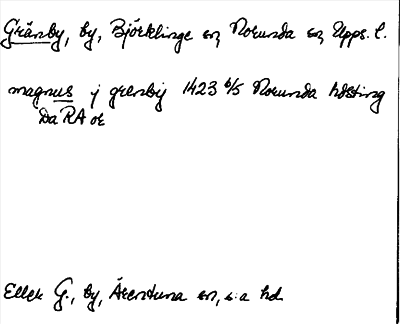 Gränby, by, Björklinge sn, Norunda sn, Upps. l.
magnus j grenbij 1423 6/5 Norunda hdsting
Da RA or
Eller G., by, Ärentuna sn, s:a hd